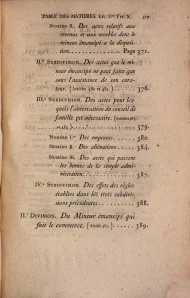 TABLE DES MATIERES. Liv. I.er Tit. X. 417
NUMÉRO II. Des actes relatifs aux
revenus et aux meubles dont le
mineur émancipé a la disposi-
tion. Pag. 371.
II.e SUBDIVISION. Des actes que le mi-
neur émancipé ne peut faire que
sous l'assistance de son cura-
teur. (Articles 480 et 482.) 376.
III.e SUBDIVISION. Des actes pour les-
quels l'autorisation du conseil de
famille est nécessaire. (Articles
379.
NUMÉRO I.er Des emprunts. 380.
NUMÉRO II. Des aliénations. 384.
NUMÉRO III. Des actes qui passent
les bornes de la simple admi-
nistration. 387.
IV.e SUBDIVISION. Des effets des règles
établies dans les trois subdivi-
sions précédentes. 388.
II.e DIVISION. Du Mineur émancipé qui
fait le commerce. (Article 487.) 389.